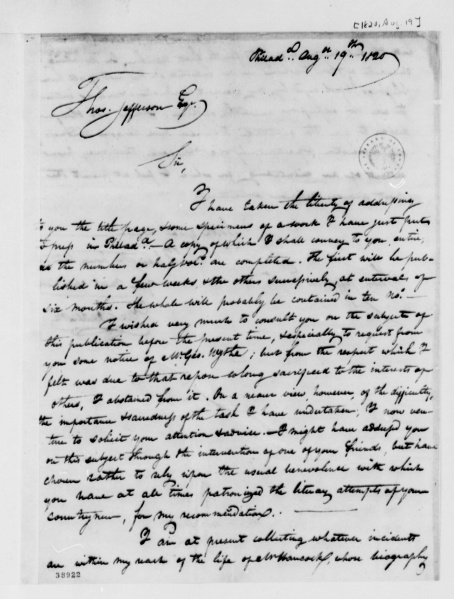 [1820, Aug 19]
Philad.ᵃ Aug.ᵗ 19.ᵗʰ 1820
Thos. Jefferson Esqr.
Sir,
I have taken the liberty of addressing
to you the title page, & some specimens of a work I have just put
to press in Philad.ᵃ — A copy of which I shall convey to you, entire,
as the numbers or half vol.ˢ are completed. The first will be pub-
lished in a few weeks & the others successively at intervals of
six months. The whole will probably be contained in ten no.ˢ —
I wished very much to consult you on the subject of
this publication before the present time, & especially to request from
you some notice of Mr. Geo. Wythe; but from the respect which I
felt was due to that repose so long sacrificed to the interests of
others, I abstained from it. On a nearer view, however, of the difficulty,
the importance & sacredness of the task I have undertaken, I now ven-
ture to solicit your attention & advice. — I might have addressed you
on this subject through the intervention of one of your friends, but have
chosen rather to rely upon the usual benevolence with which
you have at all times patronized the literary attempts of your
countrymen, for my recommendation. —
I am at present collecting whatever incidents
are within my reach of the life of Mr Hancock, whose biography
38922